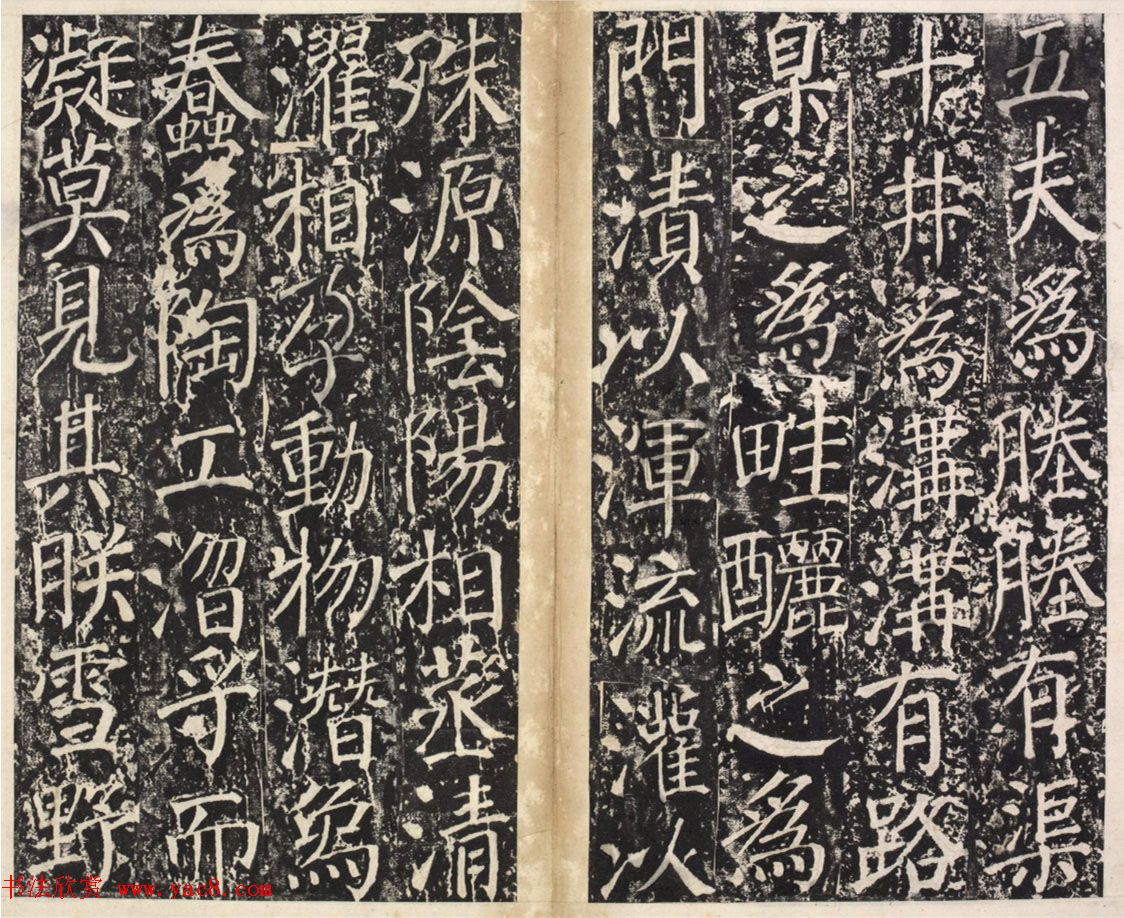 五夫爲塍塍有渠
十井爲溝溝有路
臬之爲畦釃之爲
門瀆以渾流灌以
殊源陰陽相蒸清
濯相孚動物潛爲
蠢爲陶工乎而
凝莫見其朕雪野
书法欣赏 www.yac8.com